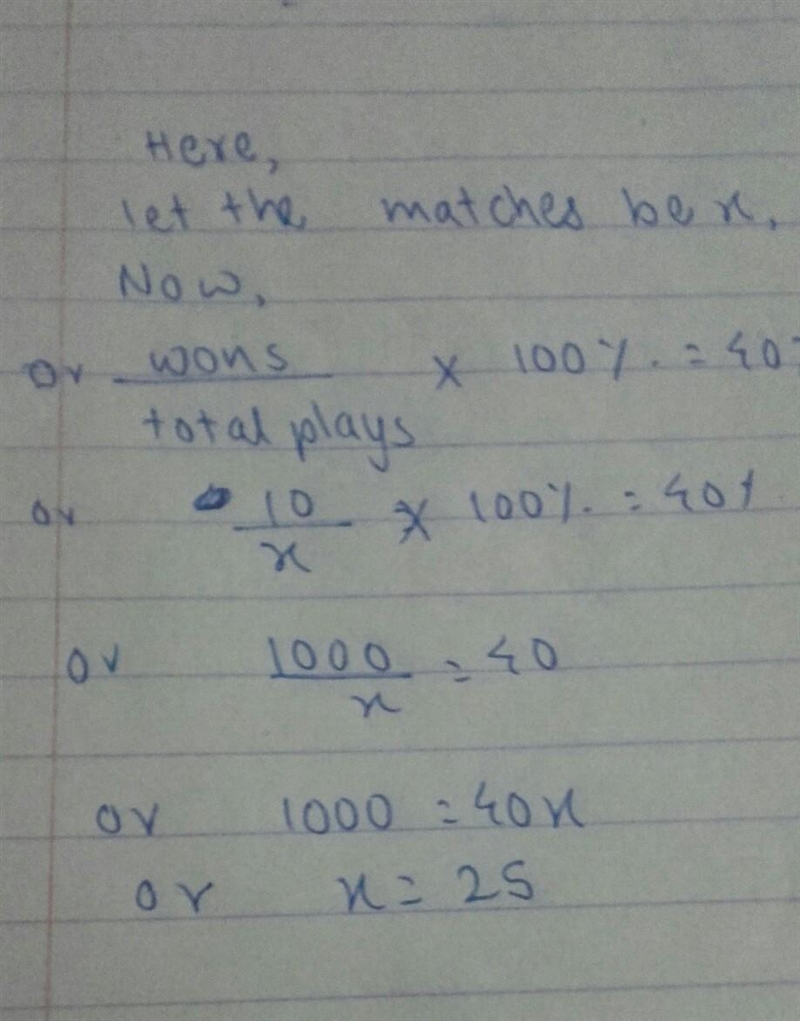 Here,
let the matches be x.
Now,
or wons / total plays × 100% = 40%
or 10 / x × 100% = 40%
or 1000 / x = 40
or 1000 = 40x
or x = 25